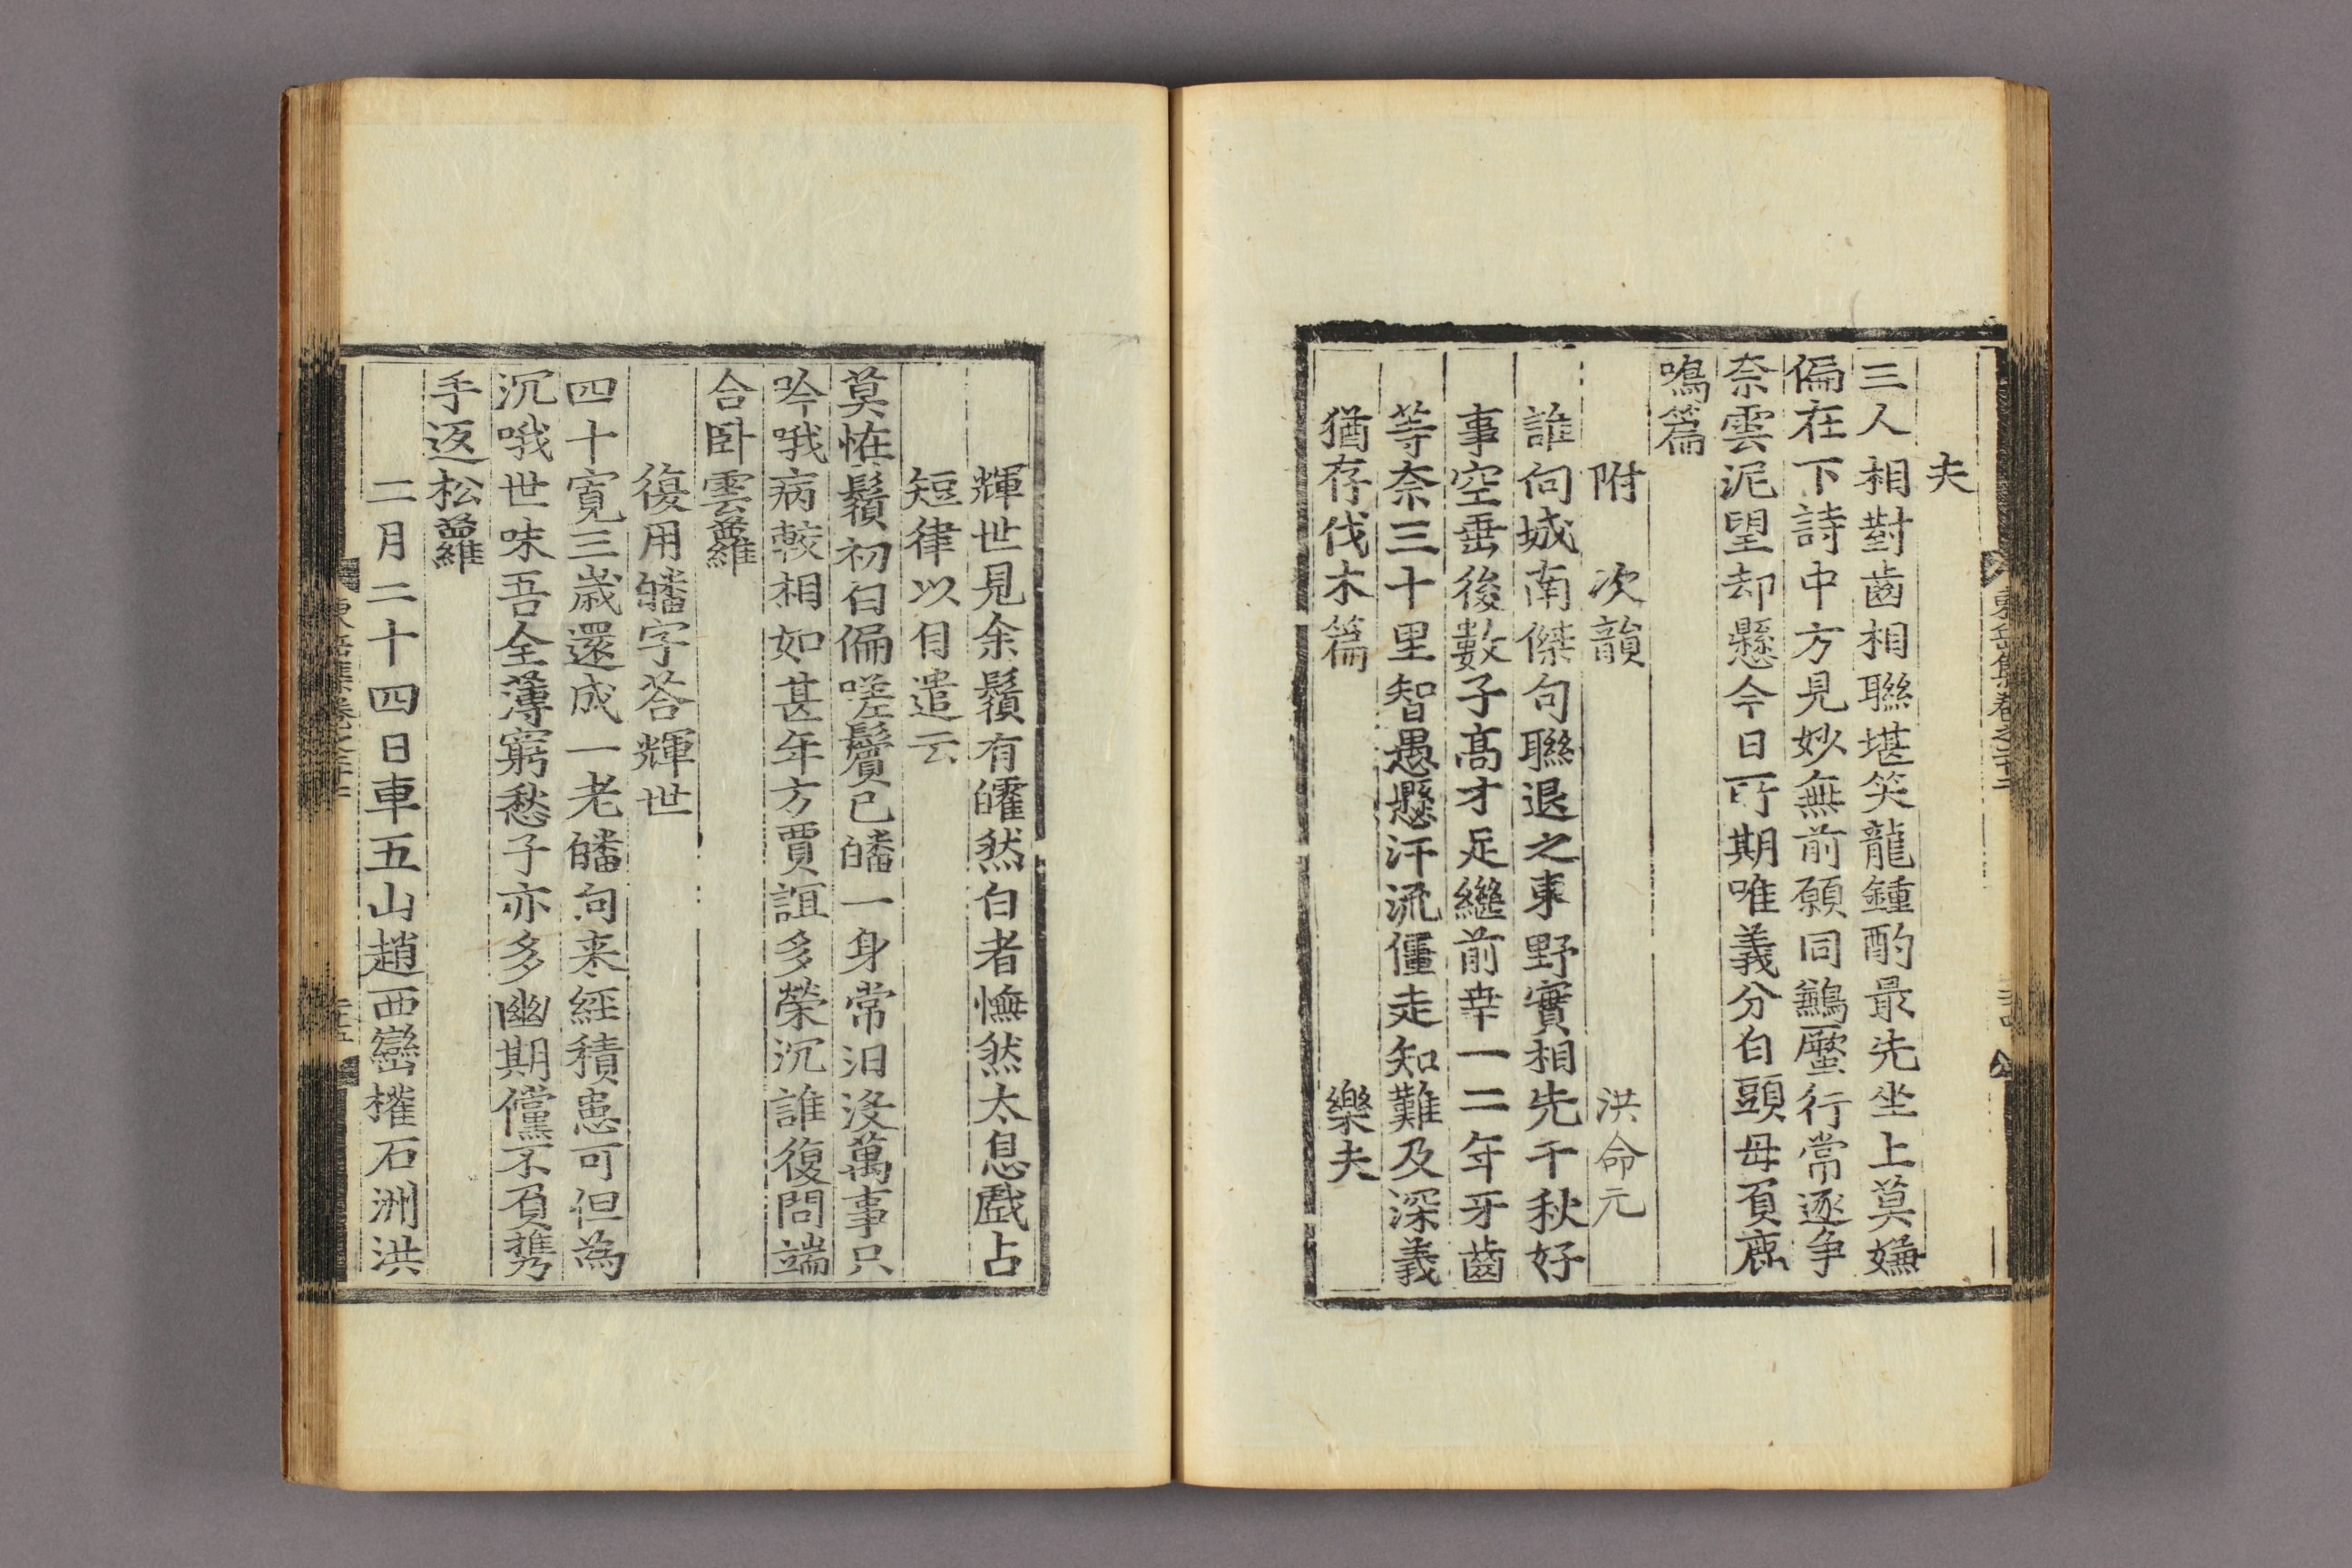 夫
三人相對齒相聯堪笑龍鍾酌最先坐上莫嫌
偏在下詩中方見妙無前願同鷀蟨行常逐争
奈雲泥望却懸今日所期唯義分白頭毋負鹿
鳴篇
附　次韻　洪命元
誰向城南傑句聯退之東野實相先千秋好
事空垂後數子高才足繼前幸一二年牙齒
等奈三十里智愚懸汗流僵走知難及深義
猶存伐木篇　樂夫
輝世見余鬚有皬然白者憮然太息戲占
短律以自遣云
莫怪鬚初白偏嗟鬢已皤一身常汨沒萬事只
吟哦病較相如甚年方賈誼多榮沉誰復問端
合卧雲蘿
復用皤字荅輝世
四十寬三歲還成一老皤向来經積患可但為
沉哦世味吾全薄窮愁子亦多幽期儻不負携
手返松蘿
二月二十四日車五山趙西巒權石洲洪